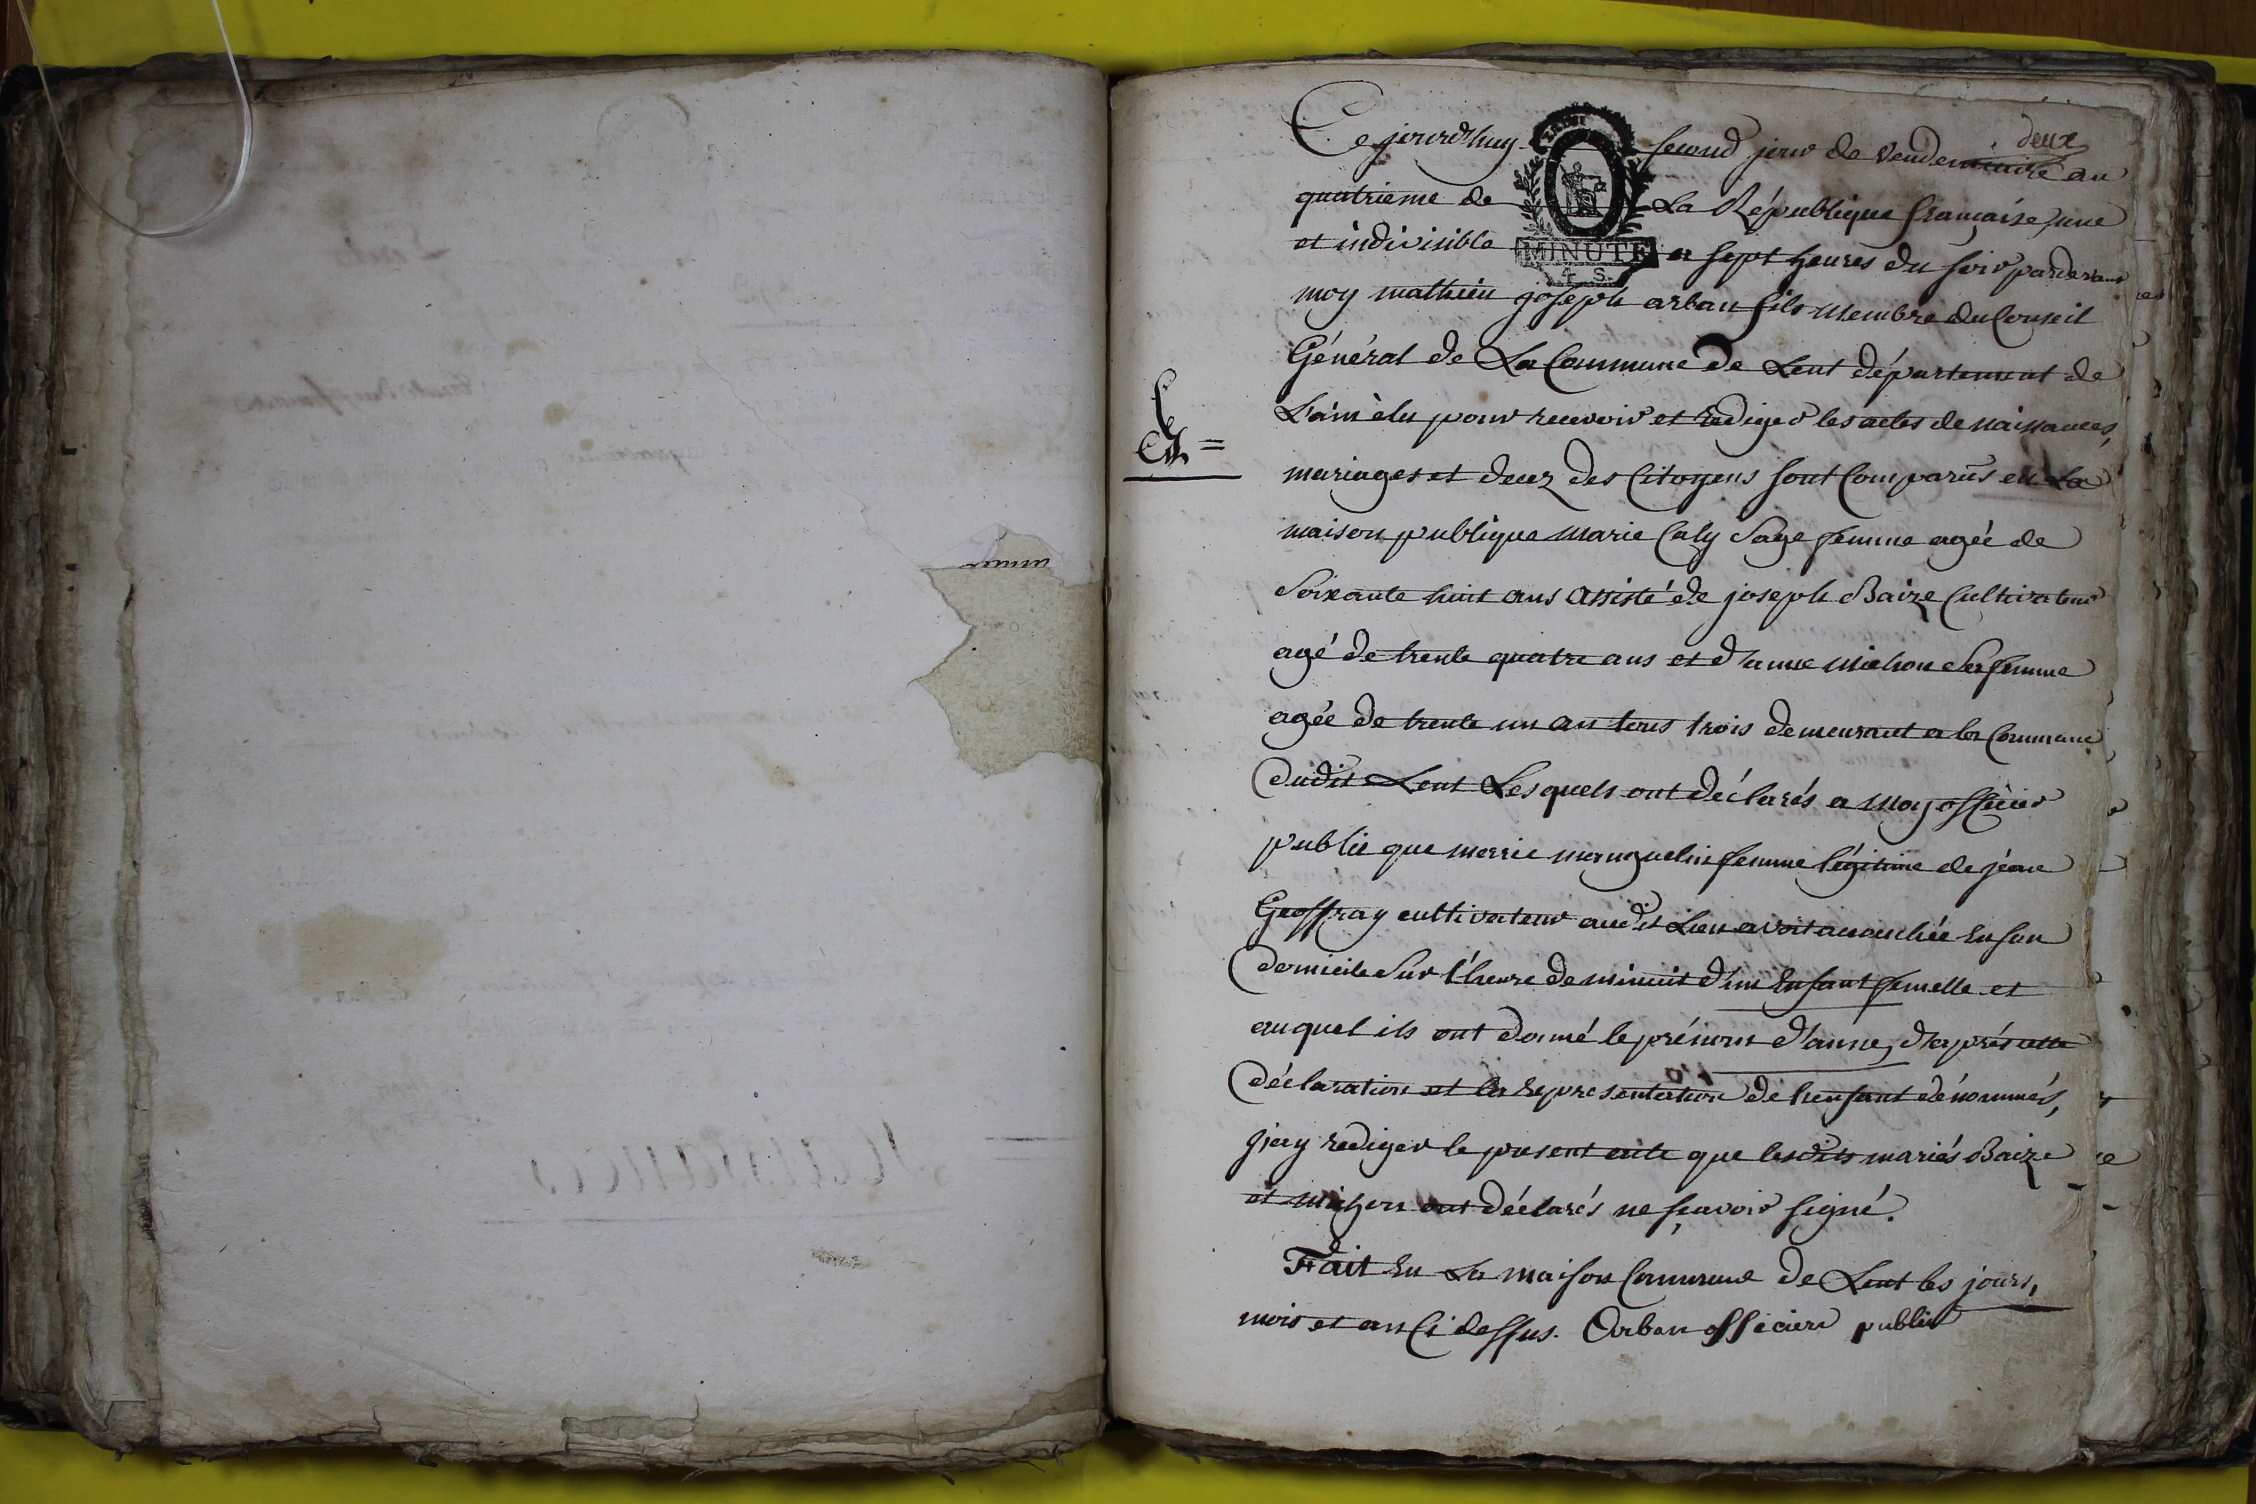 Naissances
Ce jourd'huy second jour de vendemiaire an
deux
quatrieme de La République française, une
et indivisible a sept heures du soir pardevant
MINUTE
4. S.
moy mathieu joseph arban fils membre du Conseil
Général de La Commune de Lent département de
L'ain èlu pour recevoir et rediger les actes de naissances,
mariages et decez des Citoyens sont Comparus en La
maison publique marie Caly Sage femme agée de
Soixante huit ans assisté de joseph Baize Cultivateur
agé de trente quatre ans et d'anne michon sa femme
agée de trente un an tous trois demeurant a la Commune
dudit Lent Lesquels ont déclarés a moy officier
public que marie manguelin femme légitime de jéan
Geoffray cultivateur audit Lieu avoit accouchée en son
domicile sur l'heure de minuit d'un Enfant femelle et
auquel ils ont donné le prénom d'anne, d'après cette
déclaration et la représentation de l'enfant dénommés,
j'ay rediger le present acte que lesdits mariés Baize
et michon ont déclarés ne sçavoir signé.
Fait En La maison Commune de Lent les jours,
mois et an Ci dessus. Orban officier public